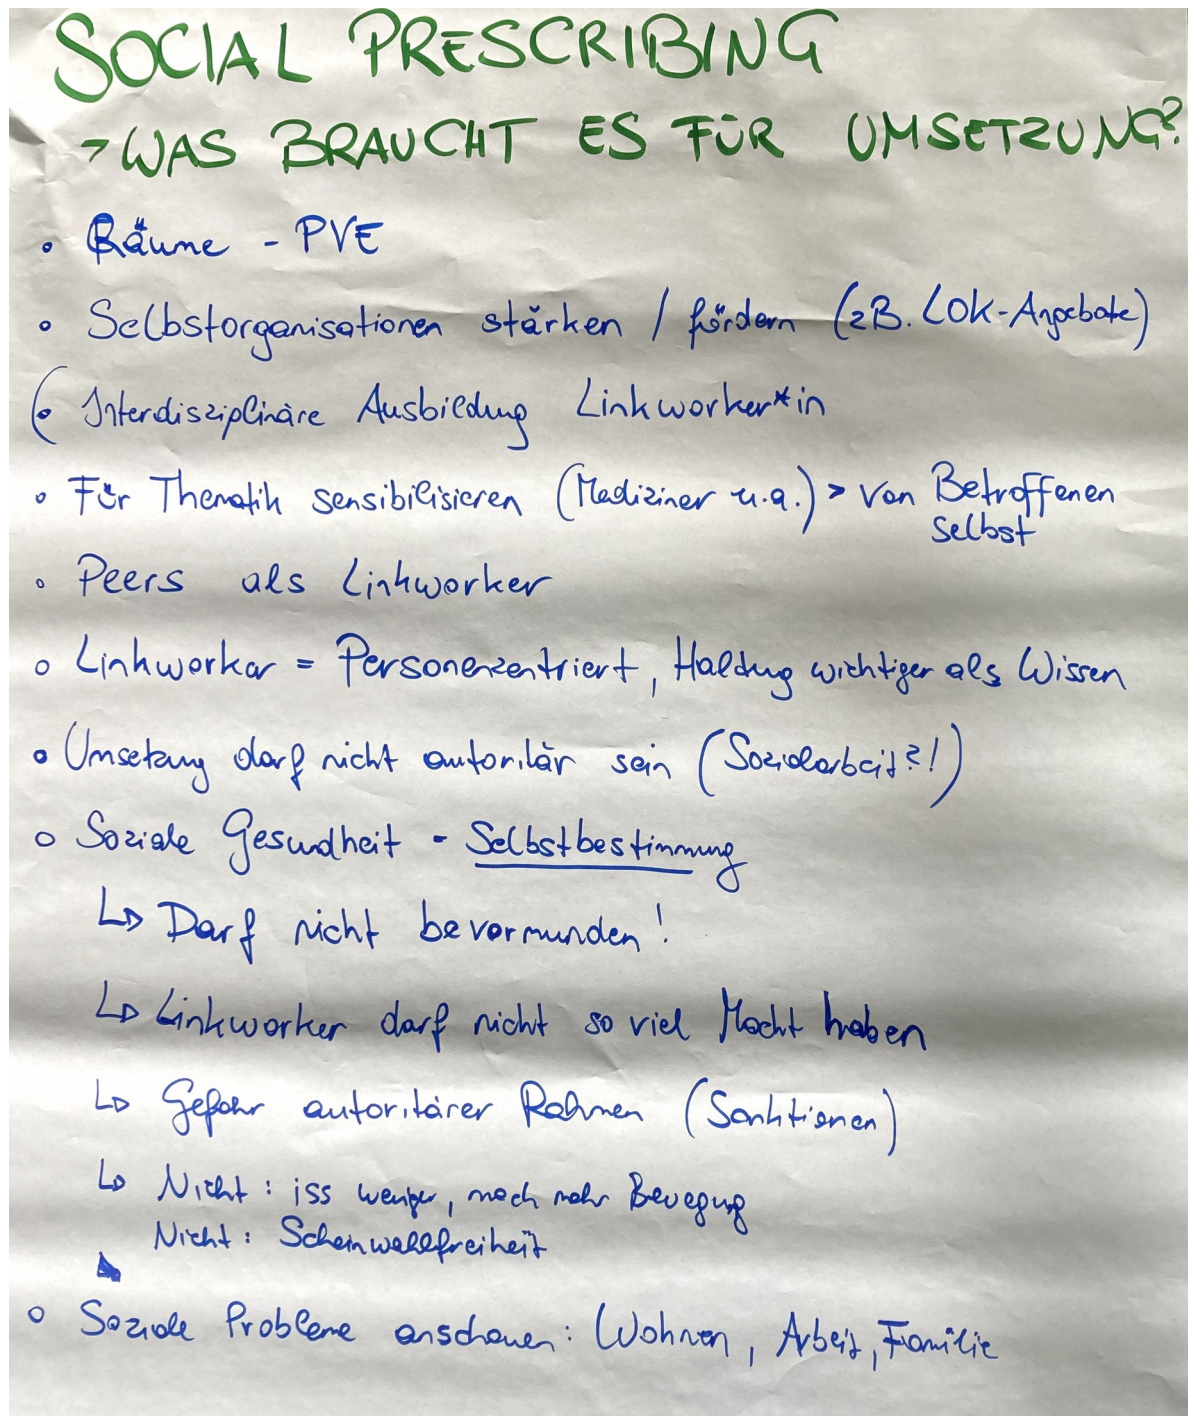 SOCIAL PRESCRIBING
→ WAS BRAUCHT ES FÜR UMSETZUNG?
• Räume - PVE
• Selbstorganisationen stärken / fördern (zB. LOK-Angebote)
(• Interdisziplinäre Ausbildung Linkworker*in
• Für Thematik sensibilisieren (Mediziner u.a.) > von Betroffenen
selbst
• Peers als Linkworker
• Linkworker = Personenzentriert, Haltung wichtiger als Wissen
• Umsetzung darf nicht autoritär sein (Sozialarbeit?!)
• Soziale Gesundheit - Selbstbestimmung
↳ Darf nicht bevormunden!
↳ Linkworker darf nicht so viel Macht haben
↳ Gefahr autoritärer Rahmen (Sanktionen)
↳ Nicht: iss weniger, mach mehr Bewegung
Nicht: Scheinwahlfreiheit
• Soziale Probleme anschauen: Wohnen, Arbeit, Familie